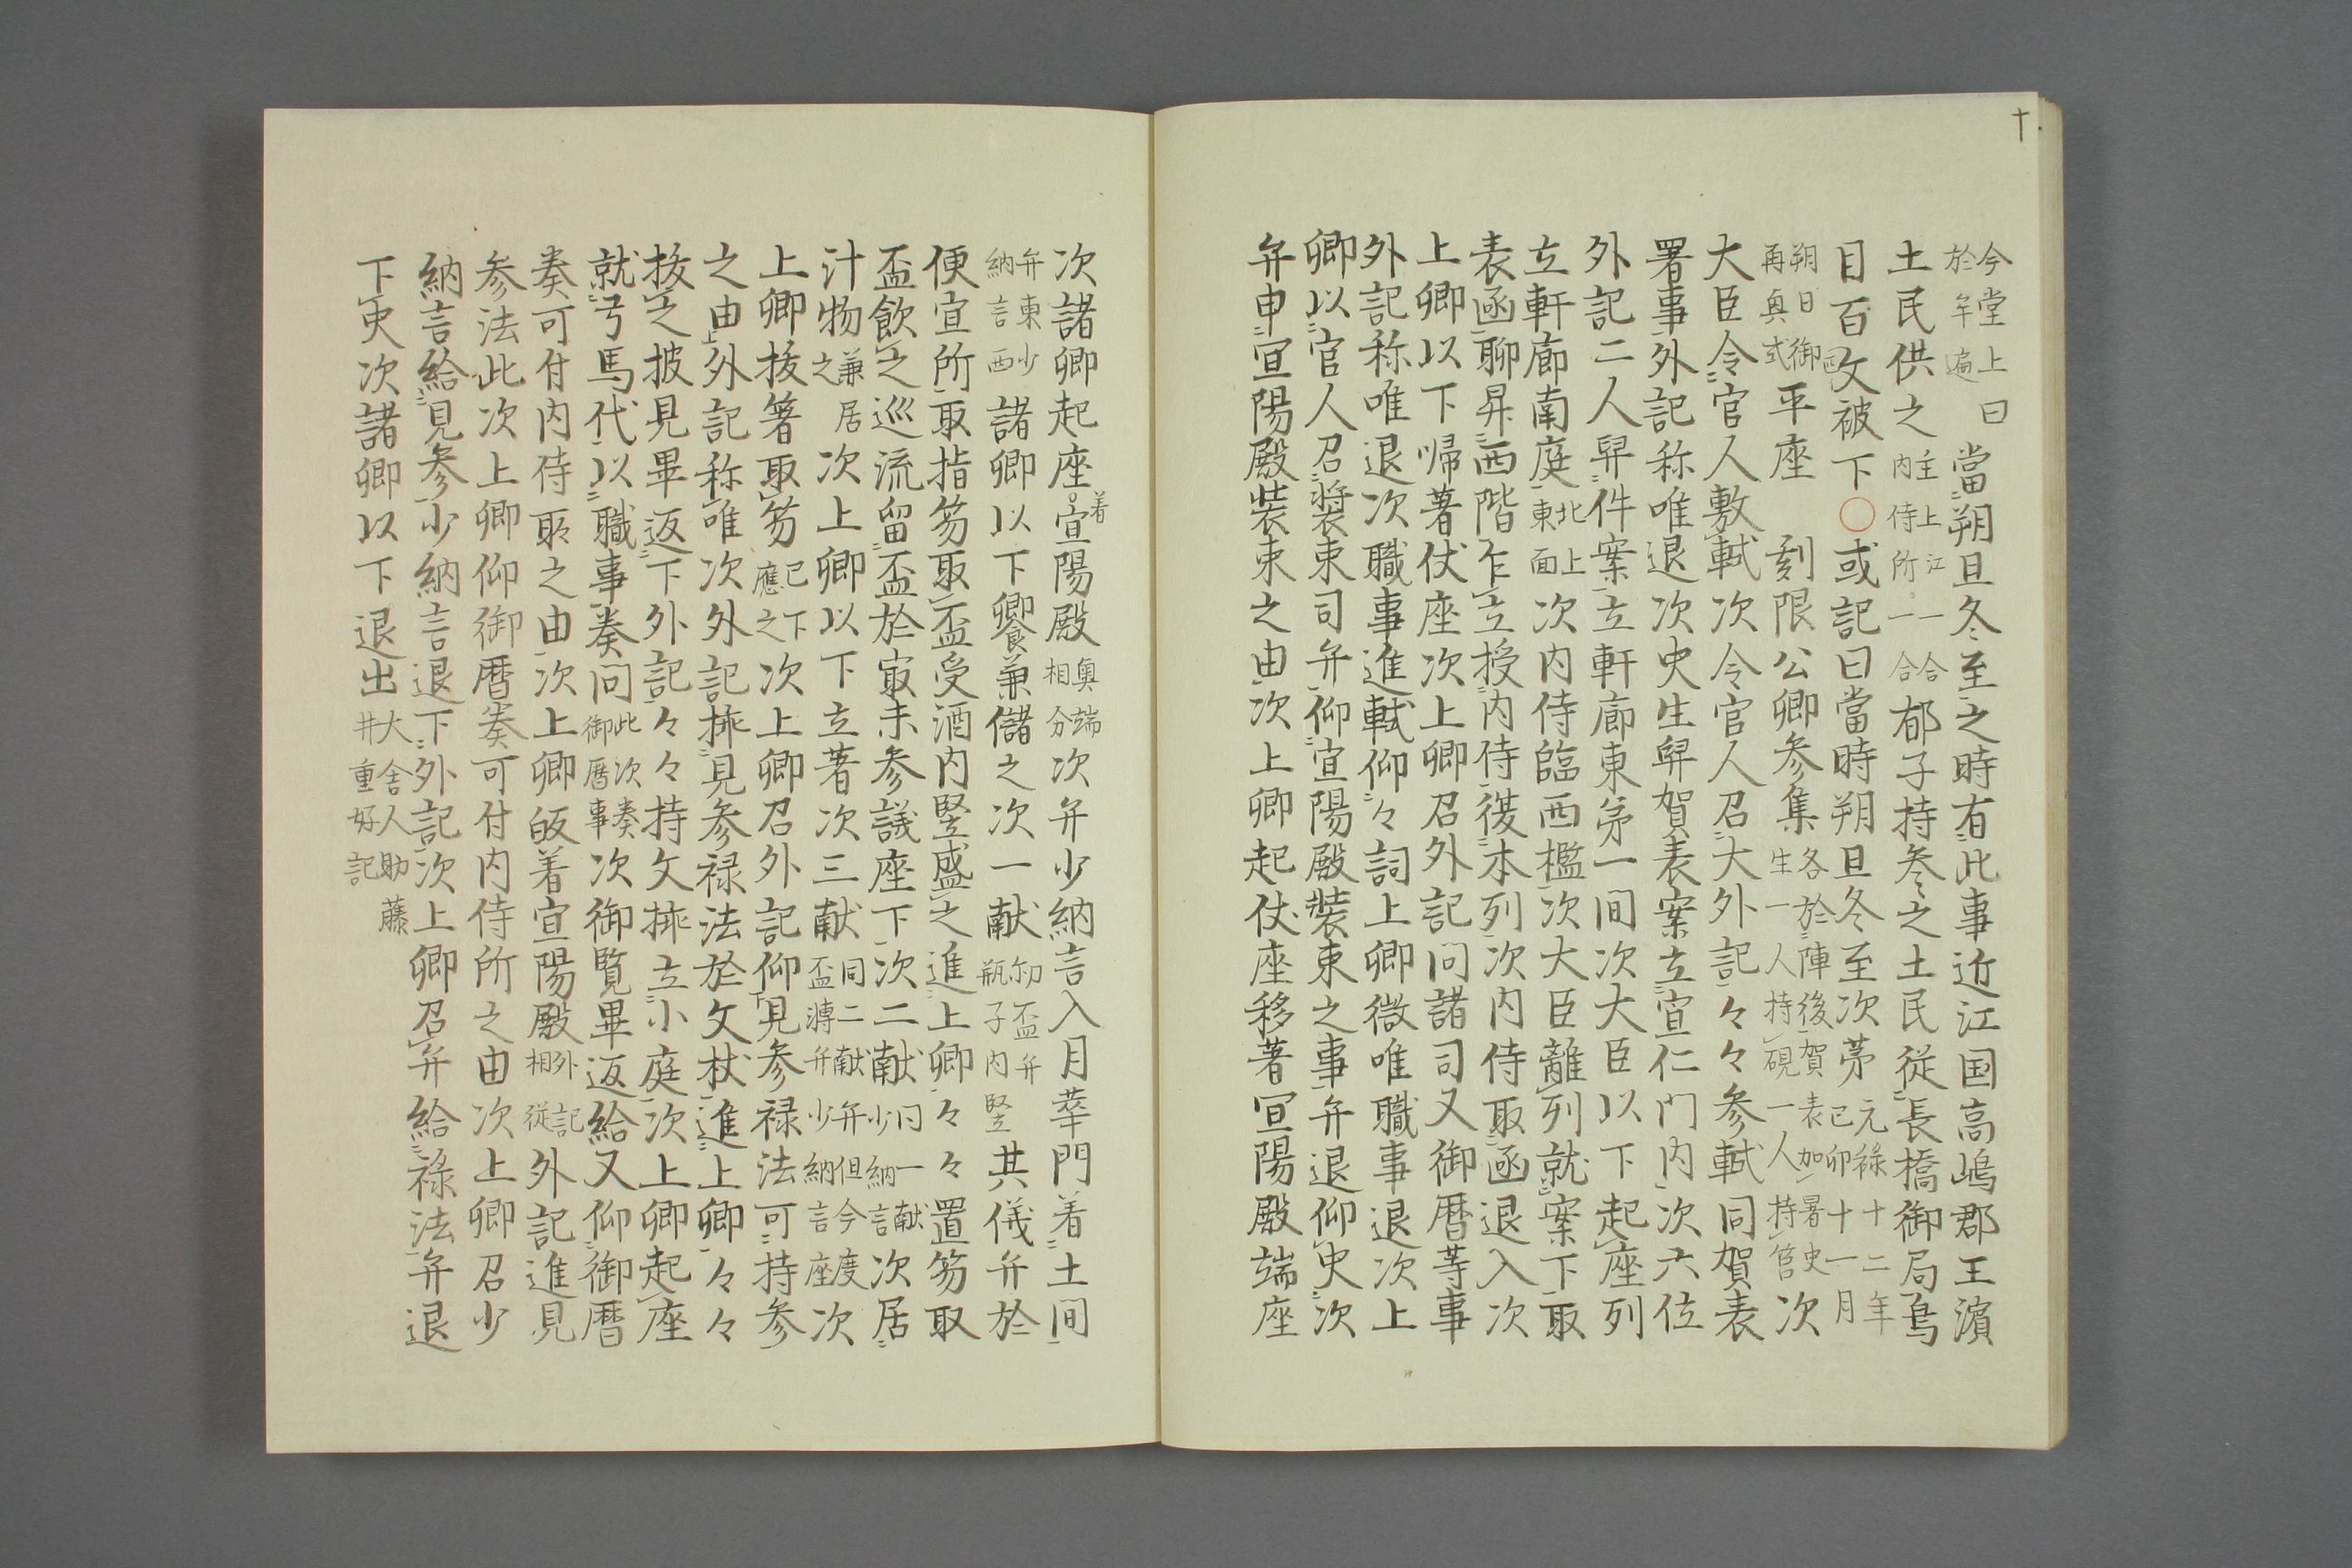 十
今堂上曰於年遍當朔旦冬至之時有此事近江国高嶋郡王濱
土民供之主上江一合内侍所一合郁子持参之土民従長橋御局鳥
目百文被下〇或記曰當時朔旦冬至次第元禄十二年己卯十一月
朔日御再真式平座刻限公卿参集各於陣後賀表加署史生一人持硯一人持筥次
大臣令官人敷軾次令官人召大外記々々参軾同賀表
署事外記称唯退次史生舁賀表案立宣仁門内次六位
外記二人舁件案立軒廊東第一間次大臣以下起座列
立軒廊南庭北上東面次内侍臨西檻次大臣離列就案下取
表函聊昇西階乍立授内侍復本列次内侍取函退入次
上卿以下帰著仗座次上卿召外記問諸司又御暦等事
外記称唯退次職事進軾仰々詞上卿微唯職事退次上
卿以官人召装束司弁仰宣陽殿装束之事弁退仰史次
弁申宣陽殿装束之由次上卿起仗座移著宣陽殿端座
次諸卿起座着宣陽殿奥端相分次弁少納言入月華門着土間
弁東少納言西諸卿以下饗兼儲之次一献勧盃弁瓶子内竪其儀弁於
便宜所取指笏取盃受酒内竪盛之進上卿々々置笏取
盃飲之巡流留盃於最末参議座下次二献少納言同一献次居
汁物兼居之次上卿以下立著次三献同二献弁但今度盃漙弁少納言座次
上卿抜箸取笏已下應之次上卿召外記仰下見参禄法可持参
之由上外記称唯次外記挿見参禄法於文杖進上卿々々
抜之披見畢返下外記々々持文挿立小庭次上卿起座
就弓馬代以職事奏問此次奏御暦事次御覧畢返給又仰御暦
奏可付内侍取之由次上卿皈着宣陽殿外記相従外記進見
参法此次上卿仰御暦奏可付内侍所之由次上卿召少
納言給見参少納言退下外記次上卿召弁給禄法弁退
下史次諸卿以下退出大舎人助藤井重好記